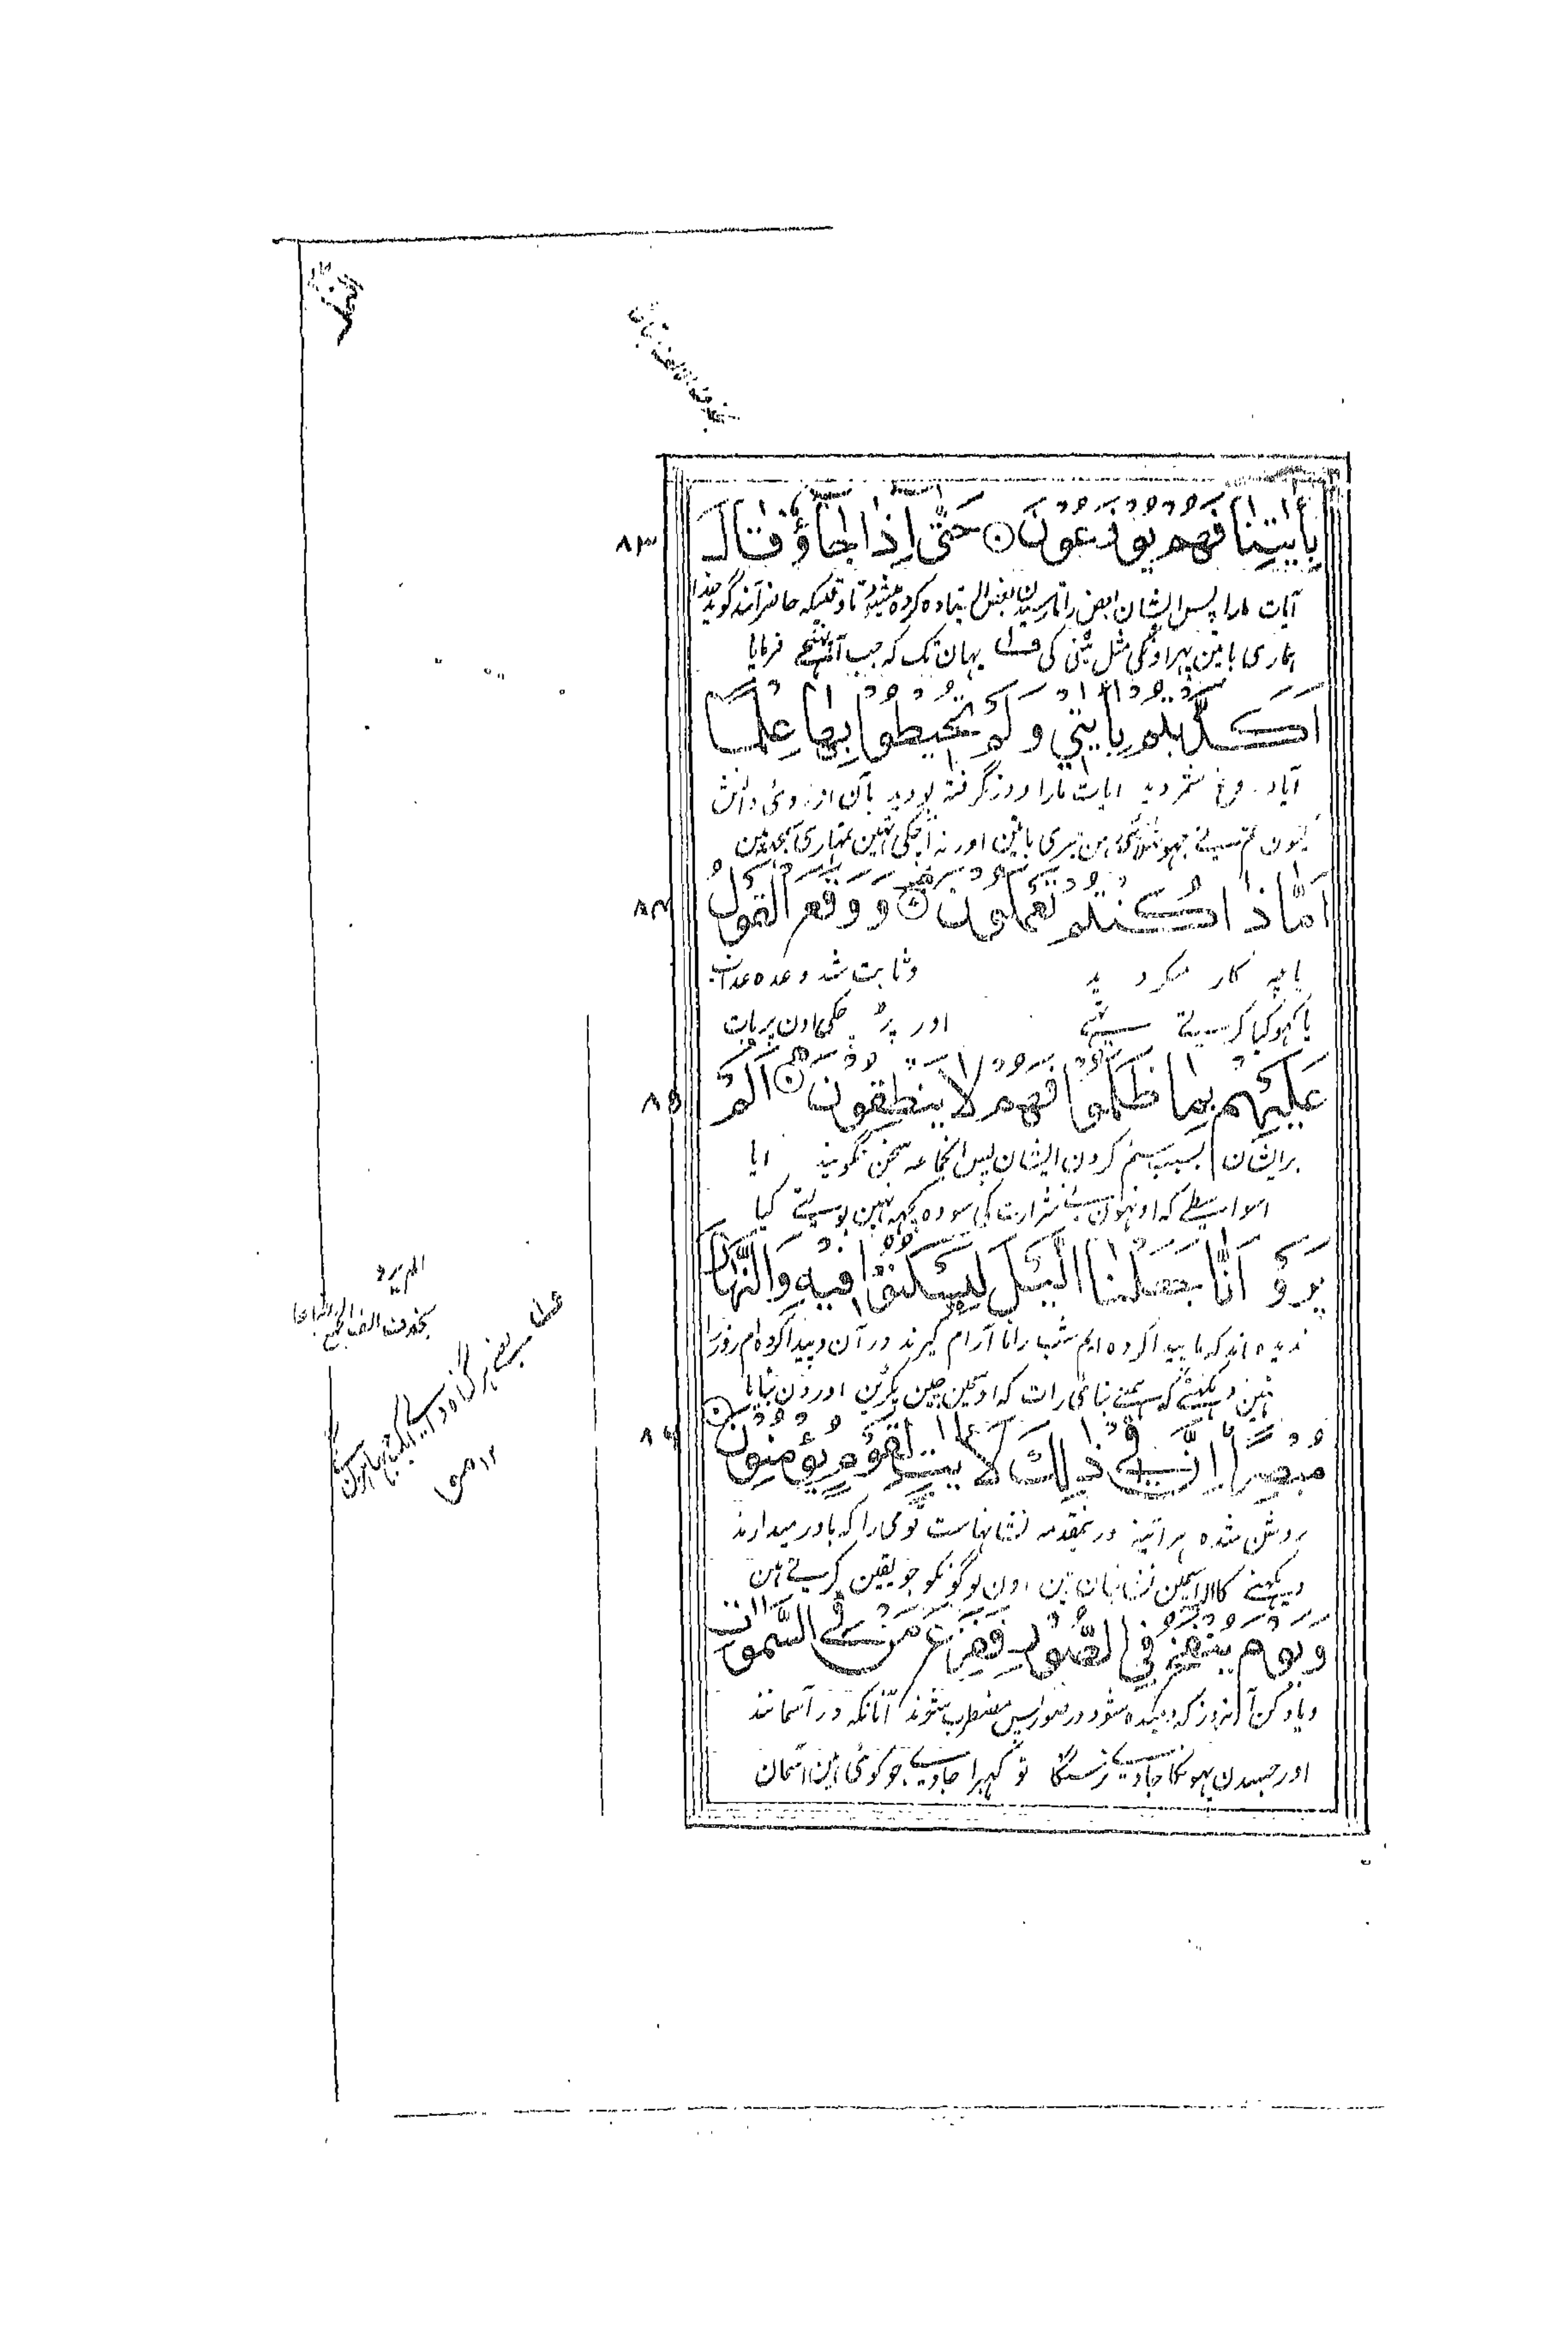 بِاٰيٰتِنَا فَهُمْ يُوْزَعُوْنَ ۝ حَتّٰٓى اِذَا جَآءُوْ قَالَ
۸۳
آیات ما را پس ایشان تا وقتیکه حاضر آمدند گوید خدا
ہماری باتین پہر اونکی مثل بٹی کی یہان تک کہ جب آ پہنچے فرمایا
اَكَذَّبْتُمْ بِاٰيٰتِيْ وَلَمْ تُحِيْطُوْا بِهَا عِلْمًا
آیا دروغ شمردید آیات مارا و در نگرفته بودید بآن از روی دانش
کیون تمنے جہوٹلائی میری باتین اور نہ آچکی تہین تمہاری سمجہہ مین
اَمَّا ذَا كُنْتُمْ تَعْمَلُوْنَ ۝ وَوَقَعَ الْقَوْلُ
۸۴
یا چہ کار میکردید وثابت شد وعده عذاب
یا کہو کیا کرتے تہے اور پڑ چکی اون پر بات
عَلَيْهِمْ بِمَا ظَلَمُوْا فَهُمْ لَا يَنْطِقُوْنَ ۝ اَلَمْ
۸۵
بر ایشان بسبب ستم کردن ایشان پس انجماعه سخن نگویند ایا
اسواسطے کہ اونہون نے شرارت کی سو وہ کچہہ نہین بولتے کیا
يَرَوْ اَنَّا جَعَلْنَا الَّيْلَ لِيَسْكُنُوْا فِيْهِ وَالنَّهَارَ
ندیده اند که ما پیدا کرده ایم شب را تا آرام گیرند در آن و پیدا کرده ام روز را
نہین دیکہتے کہ ہمنے بنائی رات کہ اوسمین چین پکڑین اور دن بنایا
مُبْصِرًا اِنَّ فِيْ ذٰلِكَ لَاٰيٰتٍ لِّقَوْمٍ يُّؤْمِنُوْنَ ۝
۸۶
روشن شده ہر آئینہ در نمقدمہ نشانہاست قومی را کہ باور میدارند
دیکہنے کا اسمین نشانیان ہین اون لوگونکو جو یقین کرتے ہین
وَيَوْمَ يُنْفَخُ فِي الصُّوْرِ فَفَزِعَ مَنْ فِي السَّمٰوٰتِ
ویاد کن آنروز کہ دمیده شود در صور پس مضطرب شوند آنانکہ در آسمانند
اور جسدن پہونکا جاوے نرسنگا تو گہبرا جاوے جو کوئی ہین آسمان